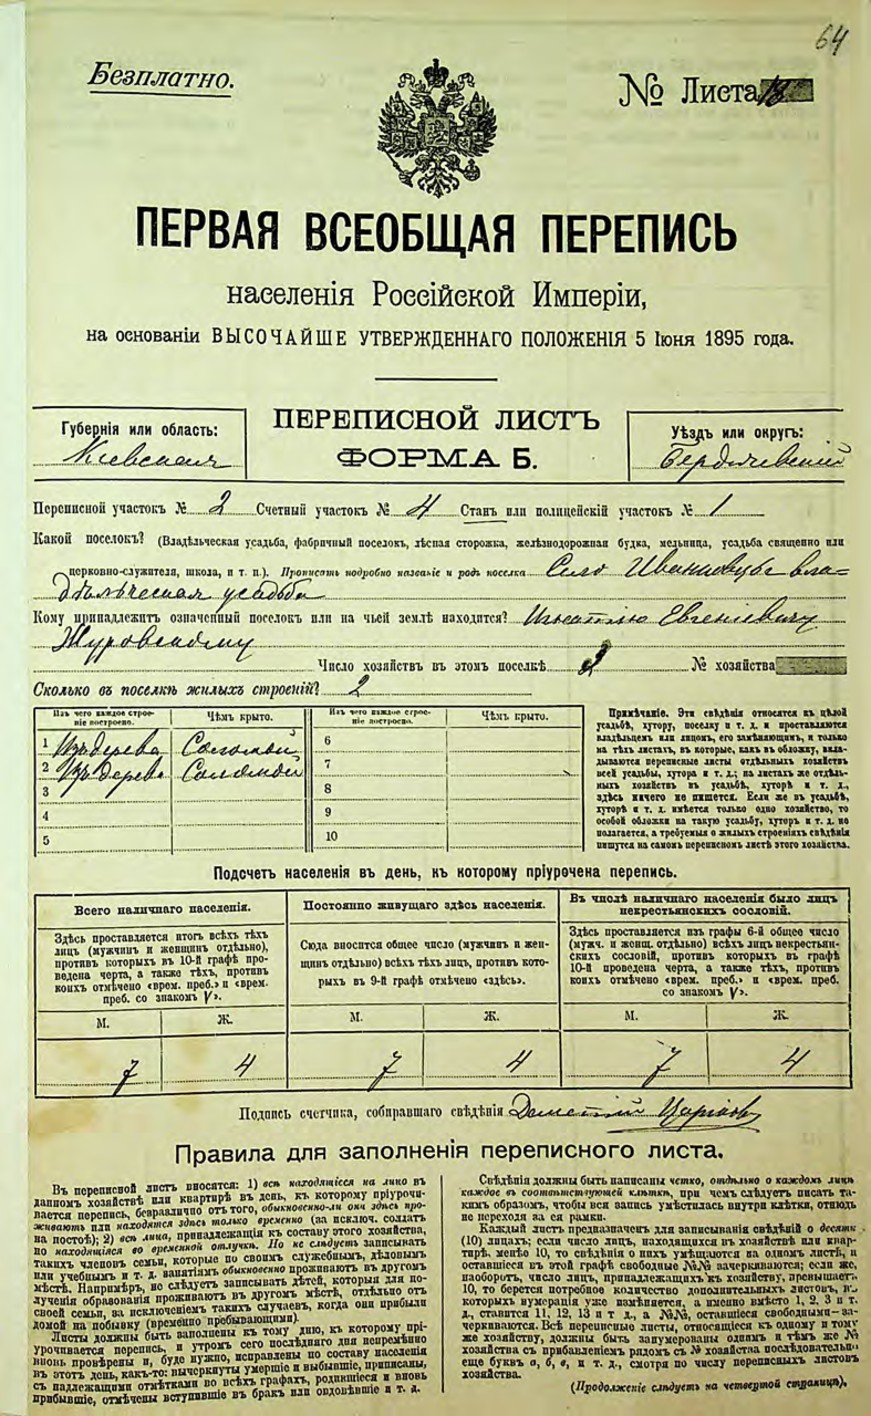 64
Безплатно.
№ Листа 18
ПЕРВАЯ ВСЕОБЩАЯ ПЕРЕПИСЬ
населенія Россійской Имперіи,
на основаніи ВЫСОЧАЙШЕ УТВЕРЖДЕННАГО ПОЛОЖЕНІЯ 5 Іюня 1895 года.
Губернія или область:
Кіевская
ПЕРЕПИСНОЙ ЛИСТЪ
ФОРМА Б.
Уѣздъ или округъ:
Бердичевскій
Переписной участокъ № 2 Счетный участокъ № 4 Станъ или полицейскій участокъ № 1
Какой поселокъ? (Владѣльческая усадьба, фабричный поселокъ, лѣсная сторожка, желѣзнодорожная будка, мельница, усадьба священно или
церковно-служителя, школа, и т. п.). Прописать подробно названіе и родъ поселка Село Иванковцы вла-
дѣльческая усадьба
Кому принадлежитъ означенный поселокъ или на чьей землѣ находится? Игнатію Евгеніевичу
Журовскому
Число хозяйствъ въ этомъ поселкѣ 2 № хозяйства
Сколько въ поселкѣ жилыхъ строеній? 2
Изъ чего каждое строе-
ніе построено.
Чѣмъ крыто.
Изъ чего каждое строе-
ніе построено.
Чѣмъ крыто.
1 Изъ дерева Соломой 6
2 Изъ дерева Соломой 7
3 8
4 9
5 10
Примѣчаніе. Эти свѣдѣнія относятся къ цѣлой
усадьбѣ, хутору, поселку и т. д. и проставляются
владѣльцемъ или лицомъ, его замѣняющимъ, и только
на тѣхъ листахъ, въ которые, какъ въ обложку, вкла-
дываются переписные листы отдѣльныхъ хозяйствъ
всей усадьбы, хутора и т. д.; на листахъ же отдѣль-
ныхъ хозяйствъ въ усадьбѣ, хуторѣ и т. д.,
здѣсь ничего не пишется. Если же въ усадьбѣ,
хуторѣ и т. д. имѣется только одно хозяйство, то
особой обложки на такую усадьбу, хуторъ и т. д. не
полагается, а требуемыя о жилыхъ строеніяхъ свѣдѣнія
пишутся на самомъ переписномъ листѣ этого хозяйства.
Подсчетъ населенія въ день, къ которому пріурочена перепись.
Всего наличнаго населенія.
Здѣсь проставляется итогъ всѣхъ тѣхъ
лицъ (мужчинъ и женщинъ отдѣльно),
противъ которыхъ въ 10-й графѣ про-
ведена черта, а также тѣхъ, противъ
коихъ отмѣчено «врем. преб.» и «врем.
преб. со знакомъ V».
М. Ж.
7 4
Постоянно живущаго здѣсь населенія.
Сюда вносится общее число (мужчинъ и жен-
щинъ отдѣльно) всѣхъ тѣхъ лицъ, противъ кото-
рыхъ въ 9-й графѣ отмѣчено «здѣсь».
М. Ж.
7 4
Въ числѣ наличнаго населенія было лицъ
некрестьянскихъ сословій.
Здѣсь проставляется изъ графы 6-й общее число
(мужч. и женщ. отдѣльно) всѣхъ лицъ некрестьян-
скихъ сословій, противъ которыхъ въ графѣ
10-й проведена черта, а также тѣхъ, противъ
коихъ отмѣчено «врем. преб.» и «врем. преб.
со знакомъ V».
М. Ж.
7 4
Подпись счетчика, собиравшаго свѣдѣнія
Правила для заполненія переписного листа.
Въ переписной листъ вносятся: 1) всѣ находящіеся на лицо въ
данномъ хозяйствѣ или квартирѣ въ день, къ которому пріурочи-
вается перепись, безразлично отъ того, обыкновенно-ли они здѣсь про-
живаютъ или находятся здѣсь только временно (за исключ. солдатъ
на постоѣ); 2) всѣ лица, принадлежащія къ составу этого хозяйства,
но находящіяся во временной отлучкѣ. Но не слѣдуетъ записывать
такихъ членовъ семьи, которые по своимъ служебнымъ, дѣловымъ
или учебнымъ и т. д. занятіямъ обыкновенно проживаютъ въ другомъ
мѣстѣ. Напримѣръ, не слѣдуетъ записывать дѣтей, которыя для по-
лученія образованія проживаютъ въ другомъ мѣстѣ, отдѣльно отъ
своей семьи, за исключеніемъ такихъ случаевъ, когда они прибыли
домой на побывку (временно пребывающими).
Листы должны быть заполнены къ тому дню, къ которому прі-
урочивается перепись, и утромъ сего послѣдняго дня непремѣнно
вновь провѣрены и, буде нужно, исправлены по составу населенія
въ этотъ день, какъ-то: вычеркнуты умершіе и выбывшіе, приписаны,
съ надлежащими отмѣтками во всѣхъ графахъ, родившіеся и вновь
прибывшіе, отмѣчены вступившіе въ бракъ или овдовѣвшіе и т. д.
Свѣдѣнія должны быть написаны четко, отдѣльно о каждомъ лицѣ
каждое въ соотвѣтствующей клѣткѣ, при чемъ слѣдуетъ писать та-
кимъ образомъ, чтобы вся запись умѣстилась внутри клѣтки, отнюдь
не переходя за ея рамки.
Каждый листъ предназначенъ для записыванія свѣдѣній о десяти
(10) лицахъ; если число лицъ, находящихся въ хозяйствѣ или квар-
тирѣ, менѣе 10, то свѣдѣнія о нихъ умѣщаются на одномъ листѣ, и
оставшіеся въ этой графѣ свободные №№ зачеркиваются; если же,
наоборотъ, число лицъ, принадлежащихъ къ хозяйству, превышаетъ
10, то берется потребное количество дополнительныхъ листовъ, на
которыхъ нумерація уже измѣняется, а именно вмѣсто 1, 2, 3 и т.
д., ставится 11, 12, 13 и т д., а №№, оставшіеся свободными—за-
черкиваются. Всѣ переписные листы, относящіеся къ одному и тому
же хозяйству, должны быть занумерованы однимъ и тѣмъ же №
хозяйства съ прибавленіемъ рядомъ съ № хозяйства послѣдовательно
еще буквъ а, б, в, и т. д., смотря по числу переписныхъ листовъ
хозяйства.
(Продолженіе слѣдуетъ на четвертой страницѣ).